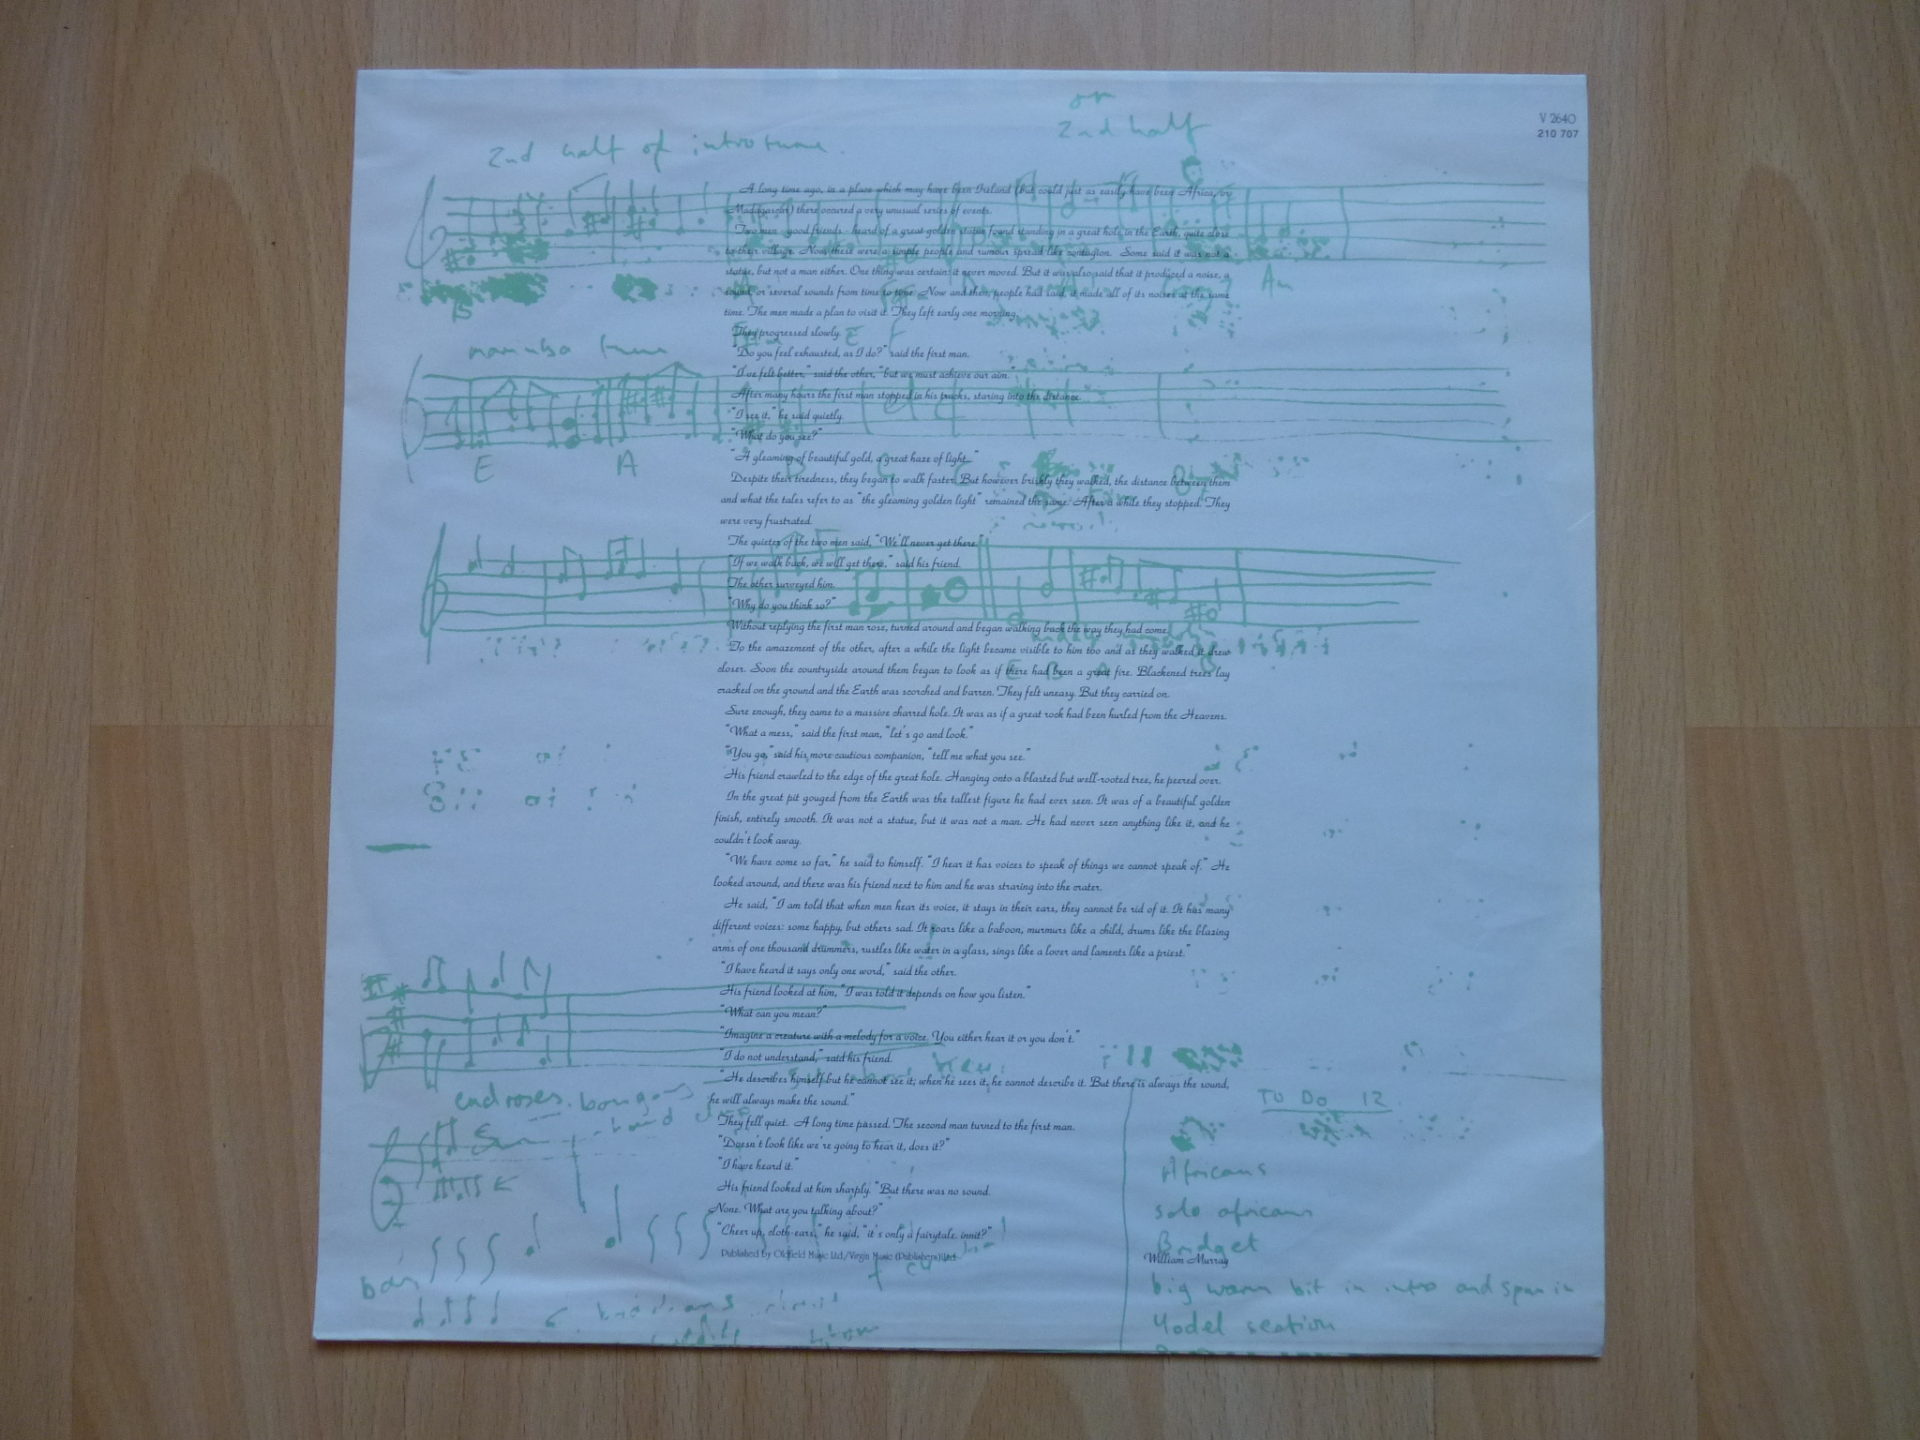 or
2nd half
2nd half of intro tune.
V 2640
210 707
A long time ago, in a place which may have been Ireland (but could just as easily have been Africa, or
Madagascar) there occured a very unusual series of events.
Two men - good friends - heard of a great golden statue found standing in a great hole in the Earth, quite close
to their village. Now these were a simple people and rumour spread like contagion. Some said it was not a
statue, but not a man either. One thing was certain: it never moved. But it was also said that it produced a noise, a
sound, or several sounds from time to time. Now and then, people had said, it made all of its noises at the same
time. The men made a plan to visit it. They left early one morning.
Am
B
E F
They progressed slowly.
marimba tune
"Do you feel exhausted, as I do?" said the first man.
"I've felt better," said the other, "but we must achieve our aim."
After many hours the first man stopped in his tracks, staring into the distance.
"I see it," he said quietly.
"What do you see?"
"A gleaming of beautiful gold, a great haze of light..."
E A
Despite their tiredness, they began to walk faster. But however briskly they walked, the distance between them
and what the tales refer to as "the gleaming golden light" remained the same. After a while they stopped. They
were very frustrated.
The quieter of the two men said, "We'll never get there."
"If we walk back, we will get there," said his friend.
The other surveyed him.
"Why do you think so?"
Without replying the first man rose, turned around and began walking back the way they had come.
To the amazement of the other, after a while the light became visible to him too and as they walked it drew
closer. Soon the countryside around them began to look as if there had been a great fire. Blackened trees lay
cracked on the ground and the Earth was scorched and barren. They felt uneasy. But they carried on.
E B A
Sure enough, they came to a massive charred hole. It was as if a great rock had been hurled from the Heavens.
"What a mess," said the first man, "let's go and look."
"You go," said his more cautious companion, "tell me what you see."
His friend crawled to the edge of the great hole. Hanging onto a blasted but well-rooted tree, he peered over.
In the great pit gouged from the Earth was the tallest figure he had ever seen. It was of a beautiful golden
finish, entirely smooth. It was not a statue, but it was not a man. He had never seen anything like it, and he
couldn't look away.
"We have come so far," he said to himself. "I hear it has voices to speak of things we cannot speak of." He
looked around, and there was his friend next to him and he was straring into the crater.
He said, "I am told that when men hear its voice, it stays in their ears, they cannot be rid of it. It has many
different voices: some happy, but others sad. It roars like a baboon, murmurs like a child, drums like the blazing
arms of one thousand drummers, rustles like water in a glass, sings like a lover and laments like a priest."
"I have heard it says only one word," said the other.
His friend looked at him, "I was told it depends on how you listen."
"What can you mean?"
"Imagine a creature with a melody for a voice. You either hear it or you don't."
"I do not understand," said his friend.
"He describes himself but he cannot see it; when he sees it, he cannot describe it. But there is always the sound,
he will always make the sound."
end roses. bongos
TO DO 12
They fell quiet. A long time passed. The second man turned to the first man.
"Doesn't look like we're going to hear it, does it?"
"I have heard it."
Africans
His friend looked at him sharply. "But there was no sound.
None. What are you talking about?"
solo africans
"Cheer up, cloth-ears," he said, "it's only a fairytale, innit?"
Bridget
Published by Oldfield Music Ltd./Virgin Music (Publishers) Ltd.
William Murray
big warm bit in intro and span in
Yodel section